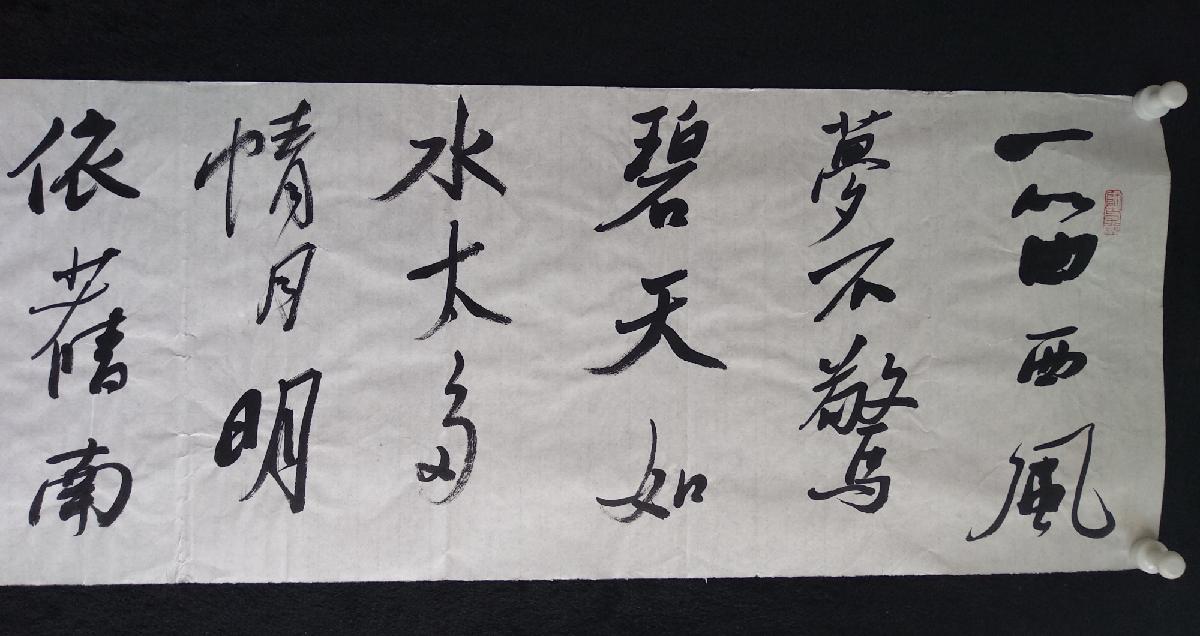 一笛西風
夢不驚
碧天如
水太多
情月明
依舊南